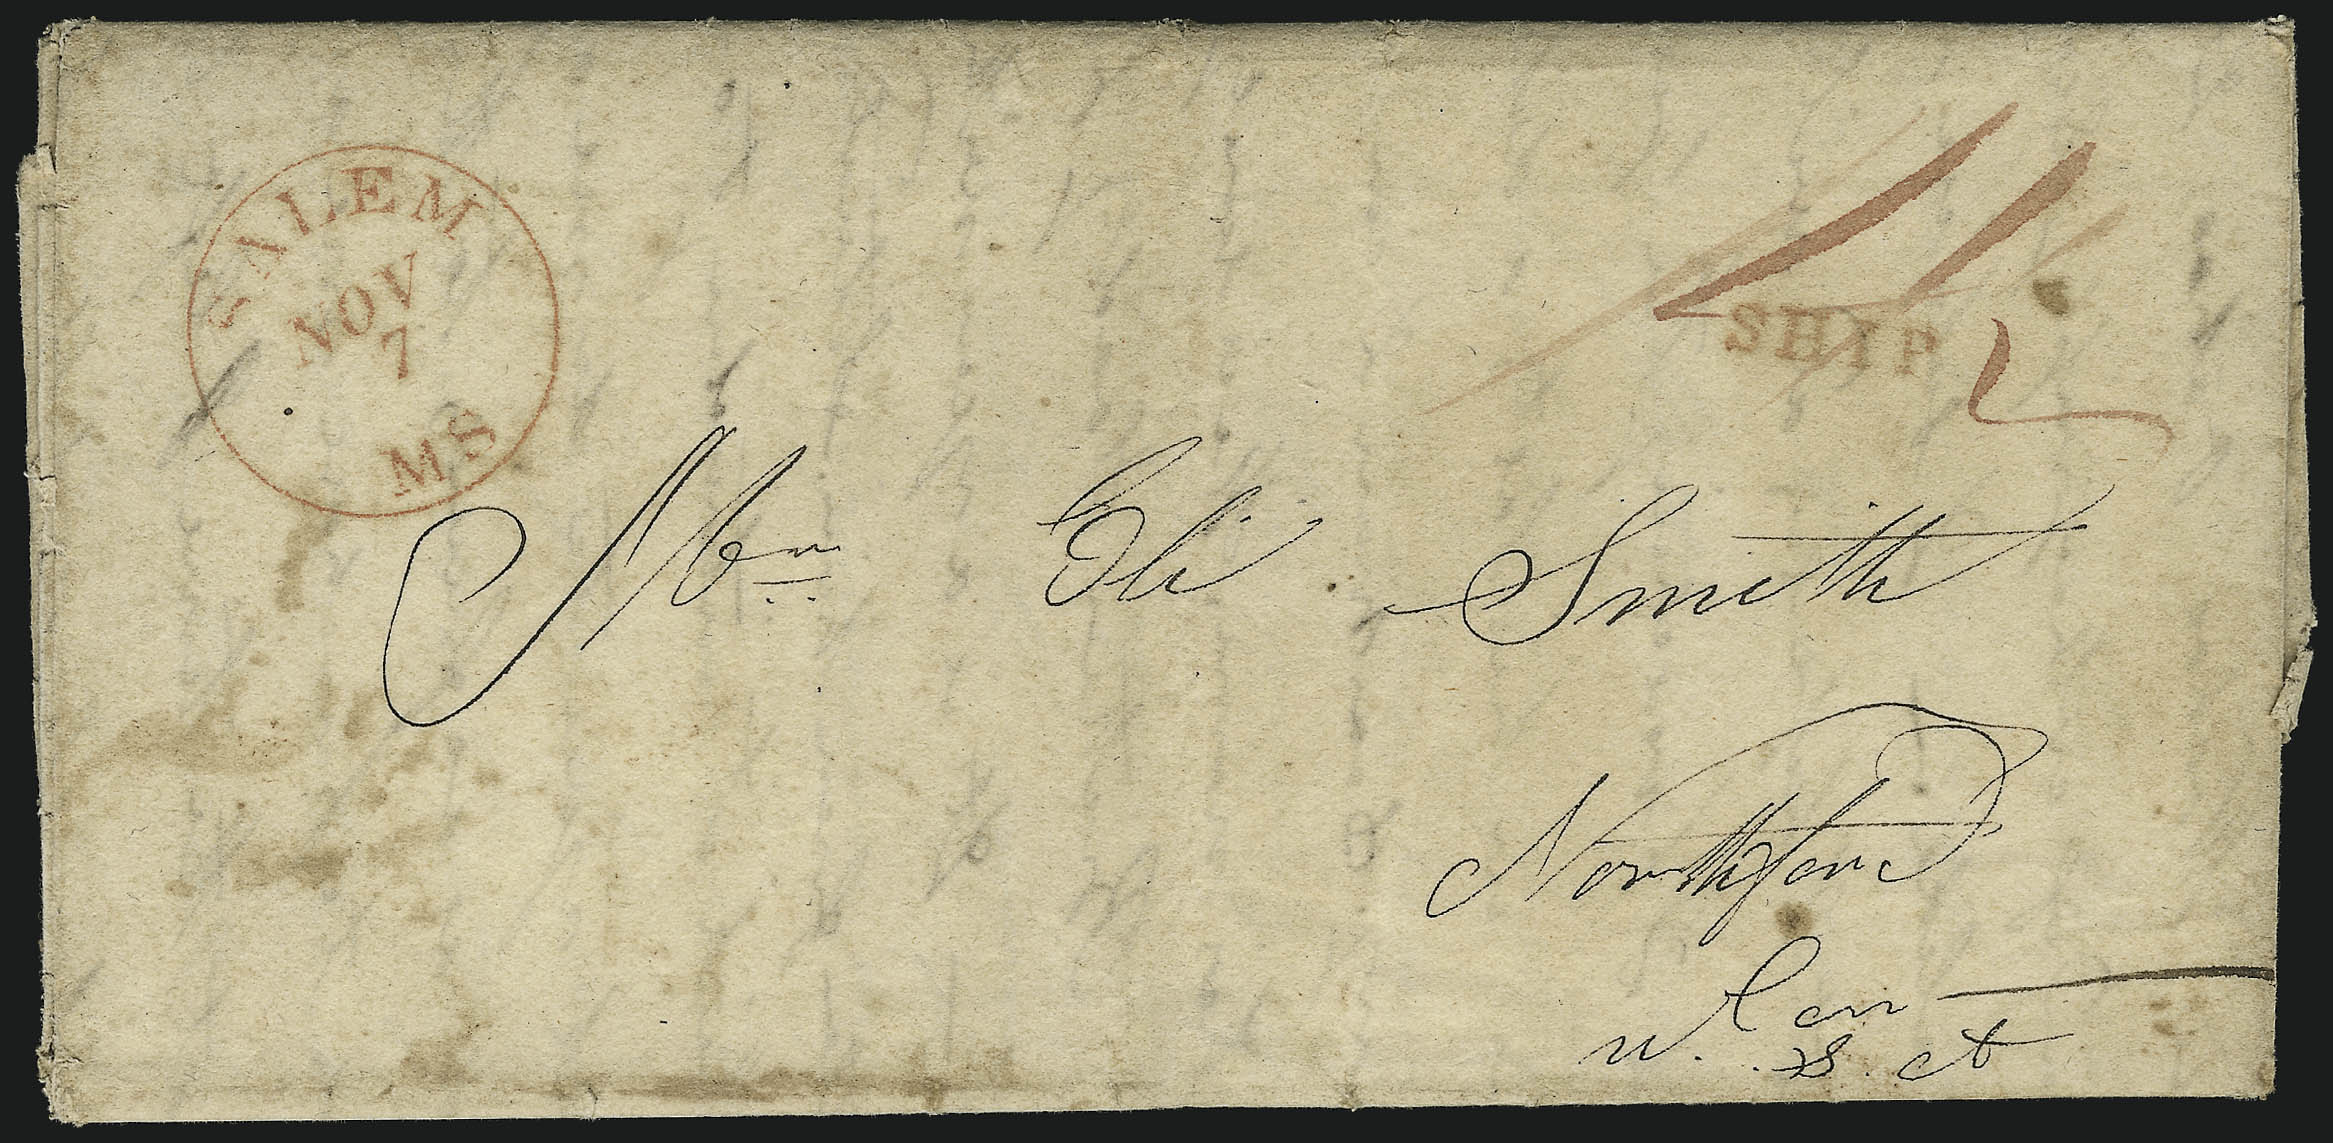 SALEM
NOV
7
MS
SHIP
Eli Smith
Northford
Con
u. s. a